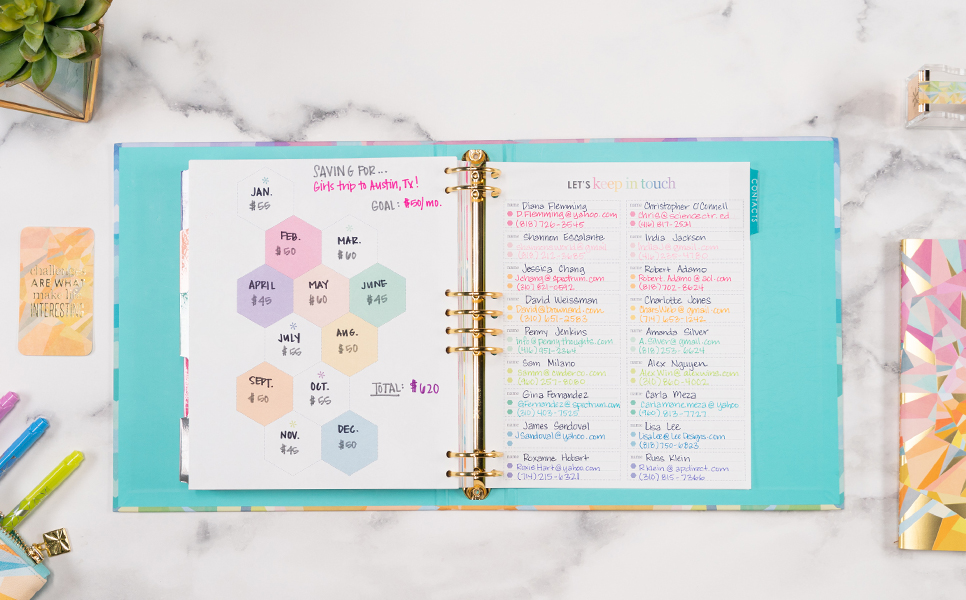 challenges
ARE WHAT
make life
INTERESTING
SAVING FOR...
Girls trip to Austin, Tx!
GOAL: $50/mo.
JAN.
$55
FEB.
$50
MAR.
$60
APRIL
$45
MAY
$60
JUNE
$45
JULY
$55
AUG.
$50
SEPT.
$50
OCT.
$55
TOTAL: $620
NOV.
$45
DEC.
$50
LET'S keep in touch
CONTACTS
Diana Flemming
D.Flemming@yahoo.com
(818) 726-3545
Christopher O'Connell
Chris@sciencectn.ed
(416) 817-2521
Shannon Escalante
India Jackson
Jessica Chang
JChang@spctrum.com
(310) 821-0592
Robert Adamo
Robert.Adamo@aol.com
(818) 702-8624
David Weissman
(310) 651-2583
Charlotte Jones
(714) 653-1242
Penny Jenkins
info@pennythoughts.com
(416) 951-2364
Amanda Silver
A.Silver@gmail.com
(818) 253-6624
Sam Milano
(960) 257-8080
Alex Nguyen
(310) 860-9002
Gina Fernandez
GFernandez@spctrum.com
(310) 403-7525
Carla Meza
carlamarie.meza@yahoo
(960) 813-7727
James Sandoval
JSandoval@yahoo.com
Lisa Lee
LisaLee@LeeDesigns.com
(818) 750-6823
Roxanne Hebart
RoxieHart@yahoo.com
(714) 215-6321
Russ Klein
R.Klein@apdirect.com
(310) 815-7366